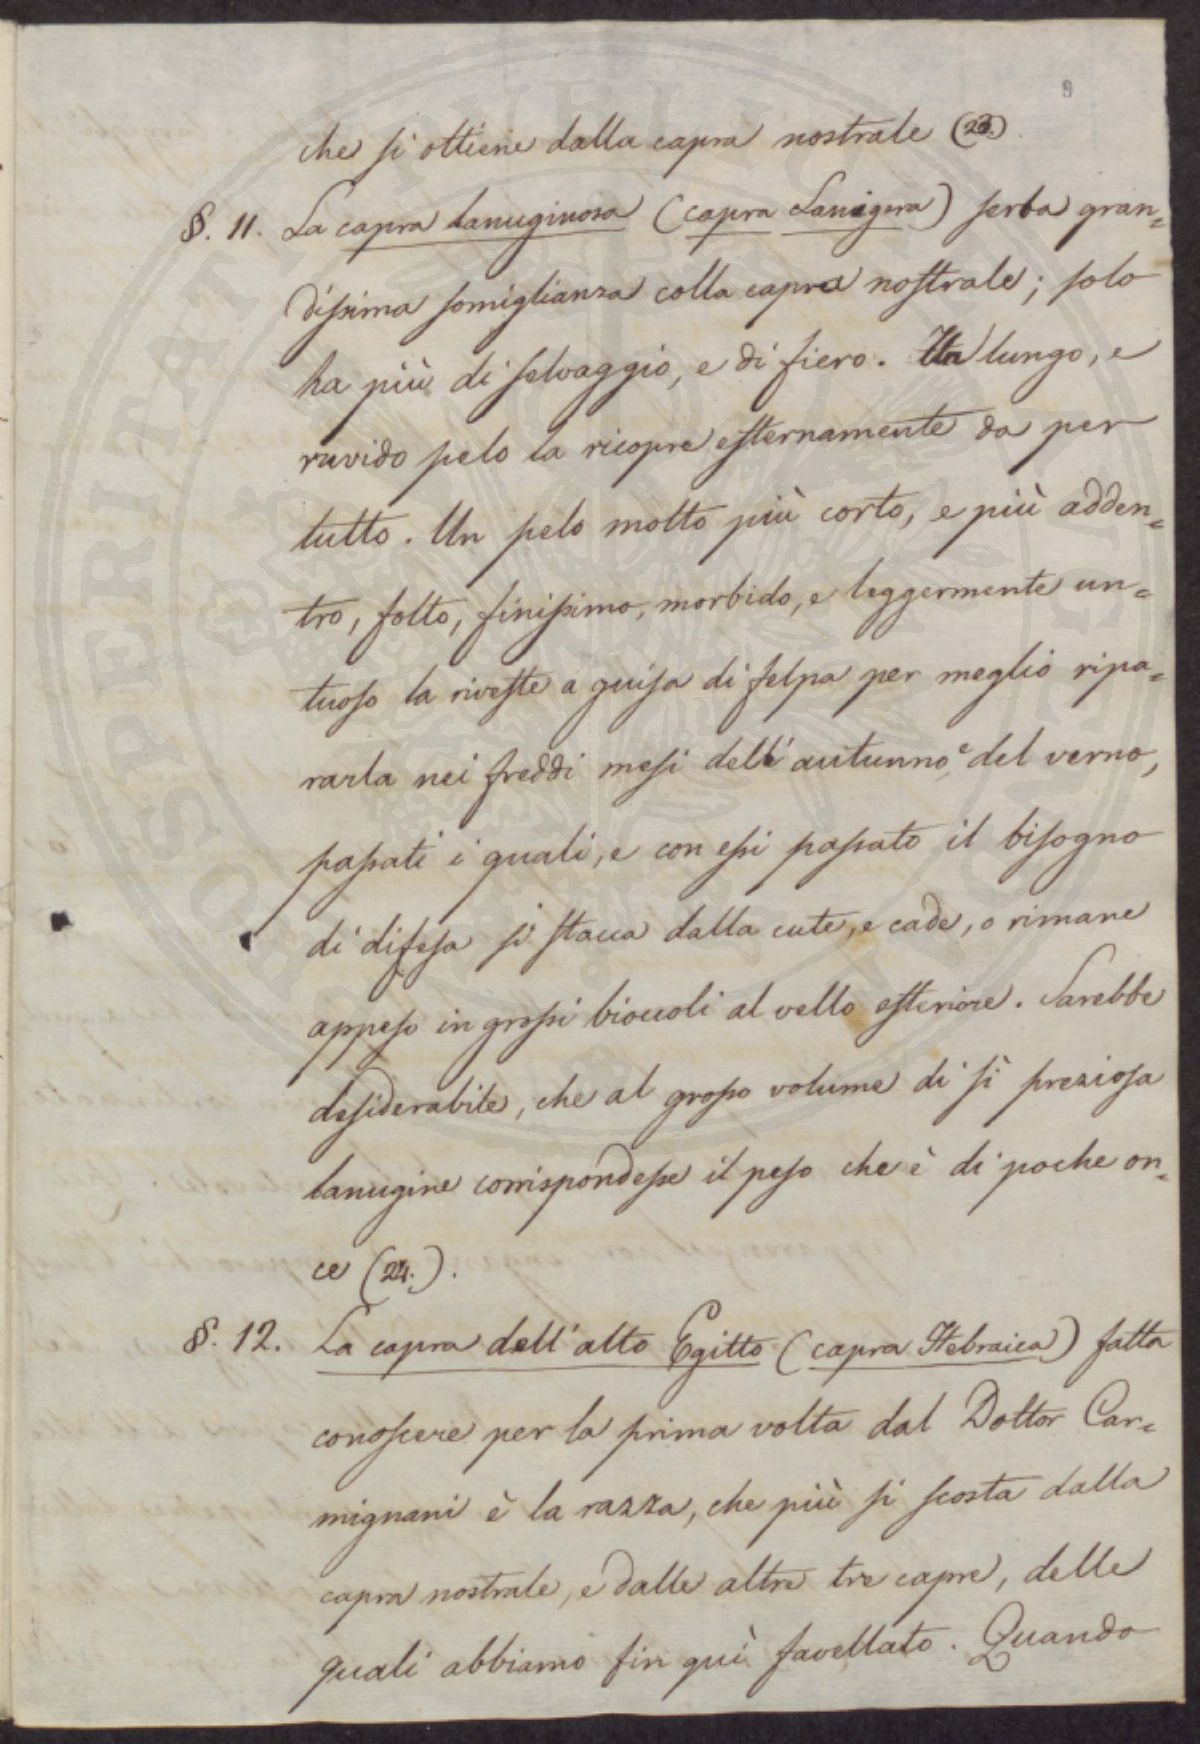 9
che si ottiene dalla capra nostrale (23.)
§. 11. La capra lanuginosa (capra Lanigera) serba gran=
dissima somiglianza colla capra nostrale; solo
ha più di selvaggio, e di fiero. Un lungo, e
ruvido pelo la ricopre esternamente da per
tutto. Un pelo molto più corto, e più adden=
tro, folto, finissimo, morbido, e leggermente un=
tuoso la riveste a guisa di felpa per meglio ripa=
rarla nei freddi mesi dell'autunno, e del verno,
passati i quali, e con essi passato il bisogno
di difesa si stacca dalla cute, e cade, o rimane
appeso in grossi bioccoli al vello esteriore. Sarebbe
desiderabile, che al grosso volume di sì preziosa
lanugine corrispondesse il peso che è di poche on=
ce (24.).
§. 12. La capra dell'alto Egitto (capra Hebraica) fatta
conoscere per la prima volta dal Dottor Car=
mignani è la razza, che più si scosta dalla
capra nostrale, e dalle altre tre capre, delle
quali abbiamo fin quì favellato. Quando
PROSPERITATI PVBLICAE